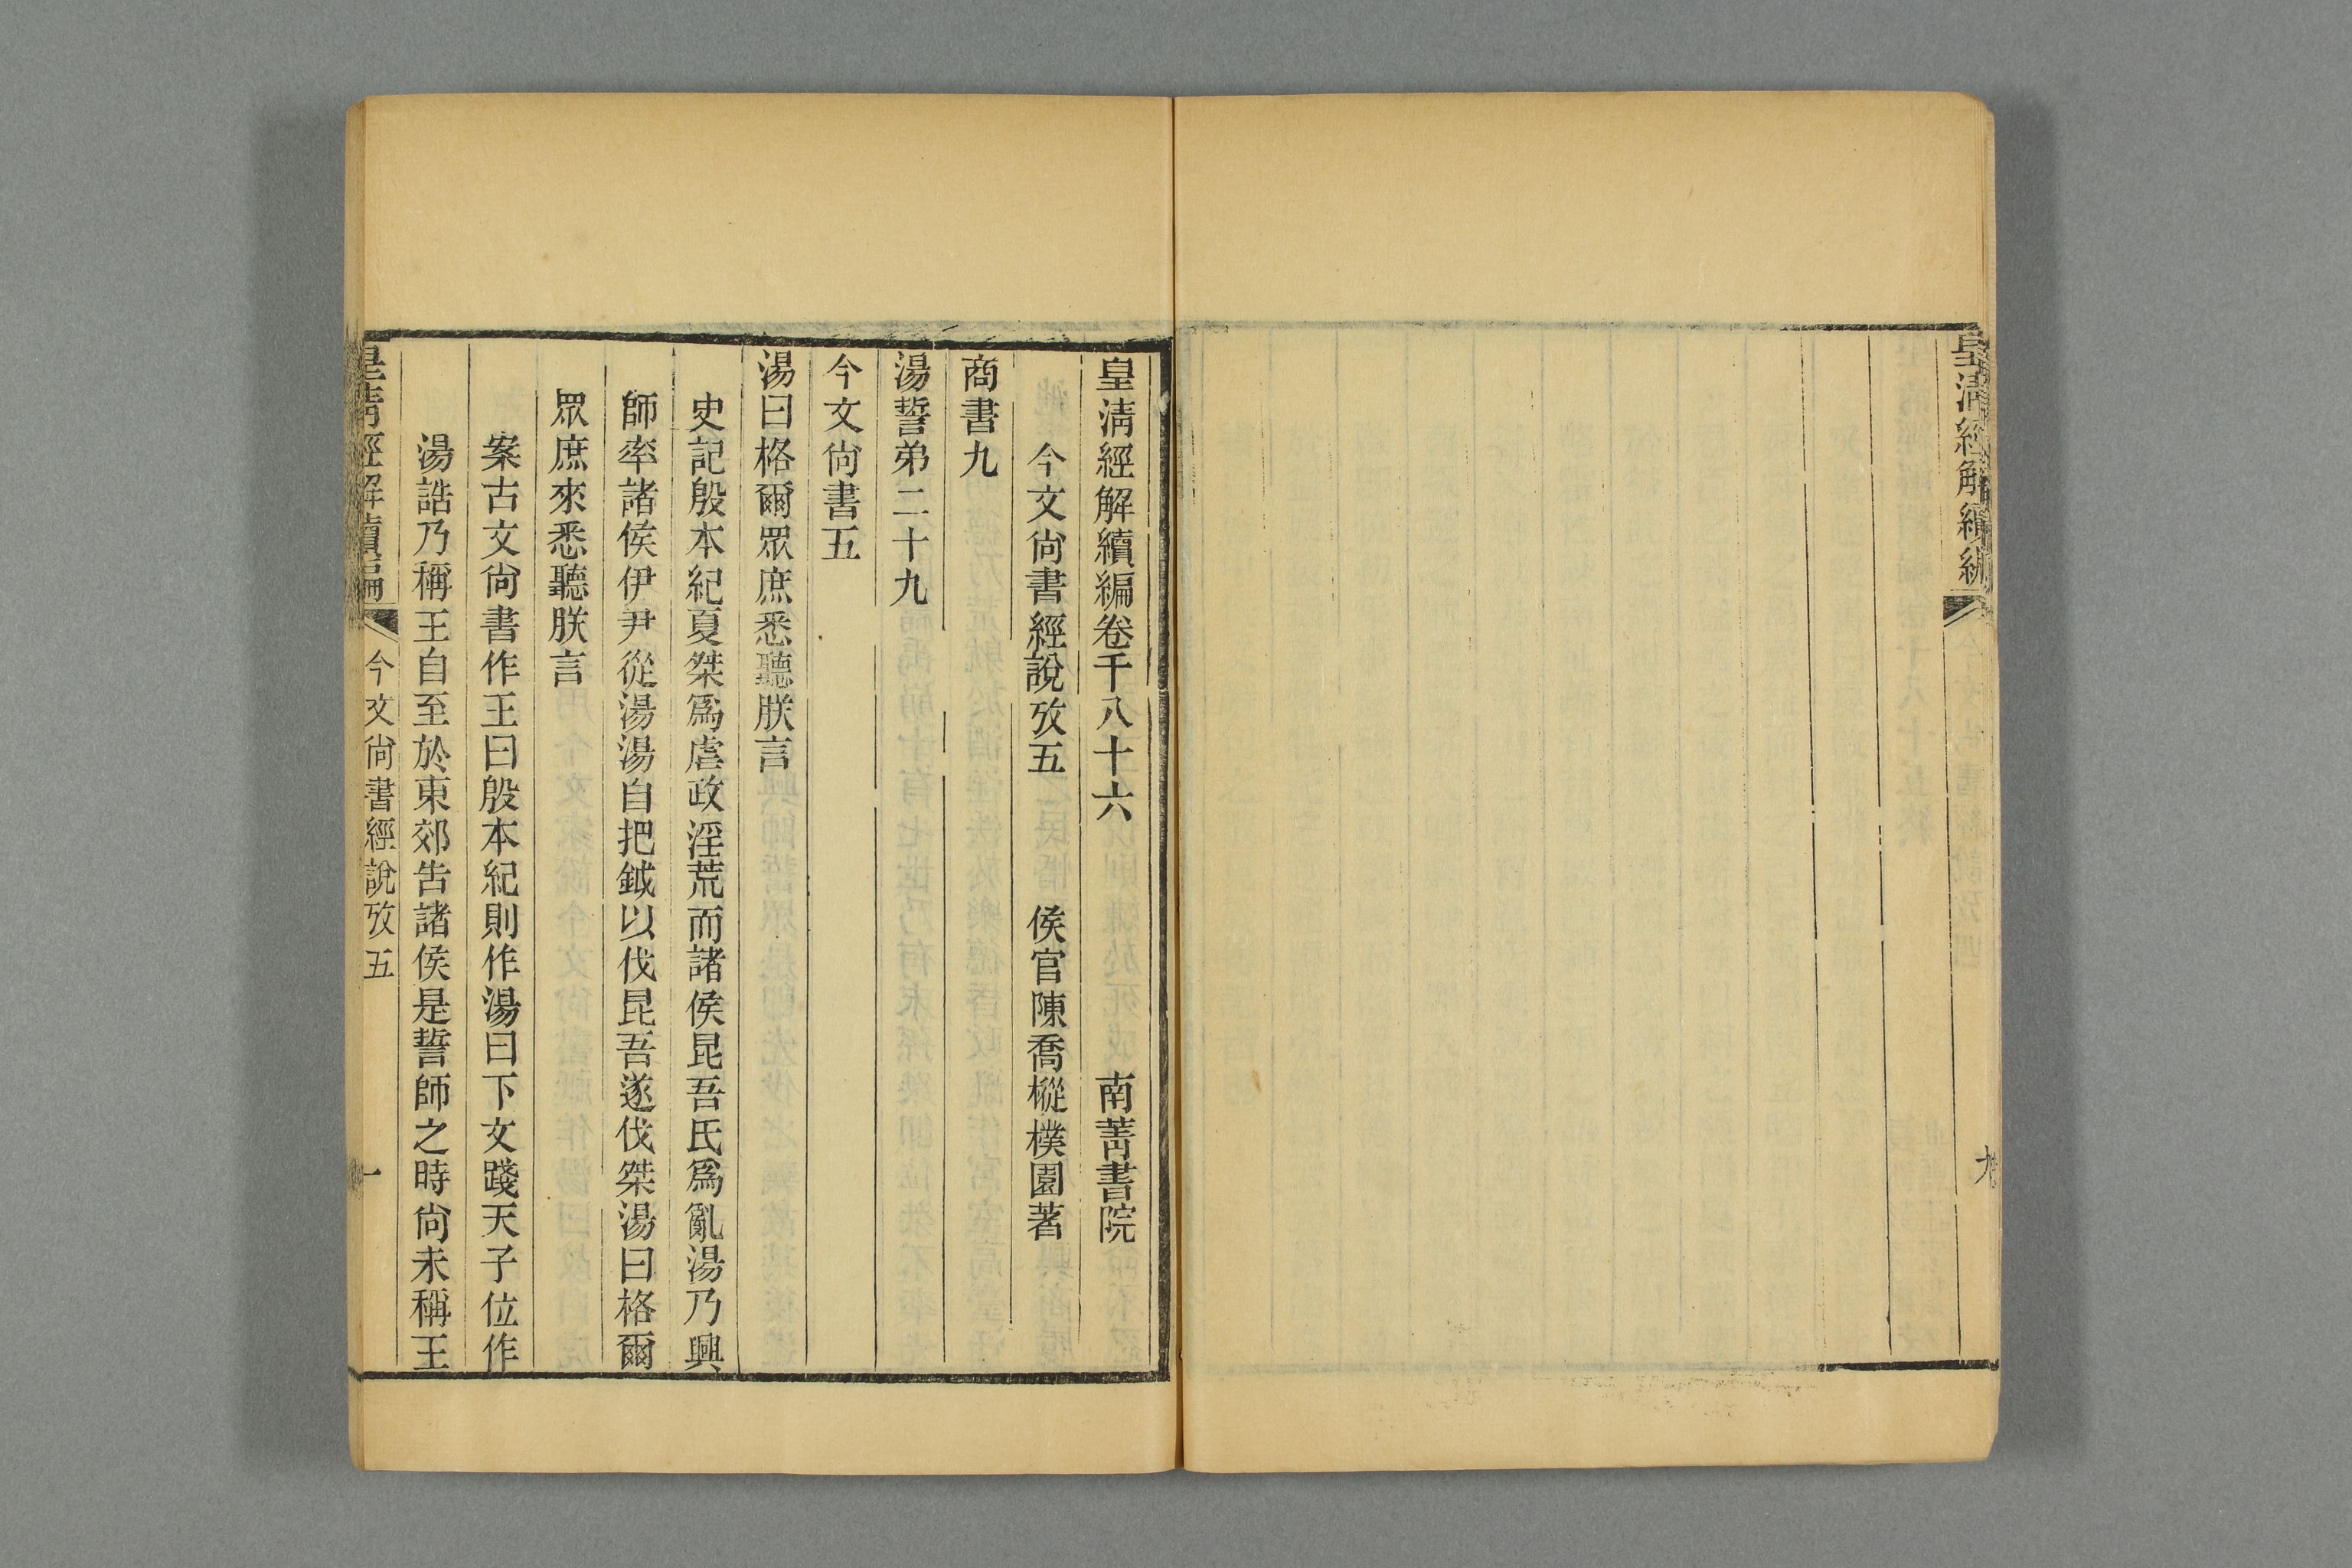 皇清經解續編
九
皇清經解續編卷千八十六 南菁書院
今文尙書經說攷五 侯官陳喬樅樸園著
商書九
湯誓弟二十九
今文尙書五
湯曰格爾眾庶悉聽朕言
史記殷本紀夏桀爲虐政淫荒而諸侯昆吾氏爲亂湯乃興
師率諸侯伊尹從湯湯自把鉞以伐昆吾遂伐桀湯曰格爾
眾庶來悉聽朕言
案古文尙書作王曰殷本紀則作湯曰下文踐天子位作
湯誥乃稱王自至於東郊告諸侯是誓師之時尙未稱王
皇清經解續編 今文尙書經說攷五 一